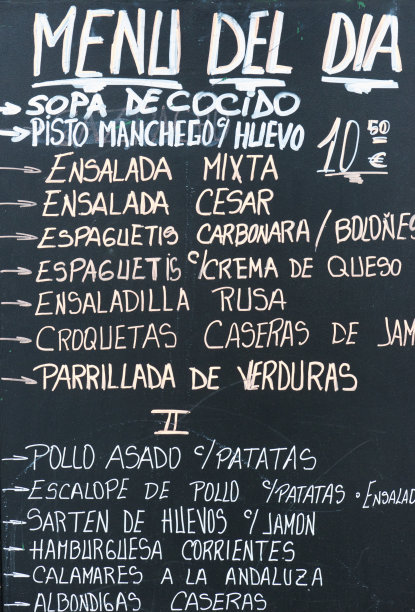 MENU DEL DIA
SOPA DE COCIDO
PISTO MANCHEGO C/ HUEVO
10 50 €
ENSALADA MIXTA
ENSALADA CESAR
ESPAGUETIS CARBONARA / BOLOÑES
ESPAGUETIS C/CREMA DE QUESO
ENSALADILLA RUSA
CROQUETAS CASERAS DE JAM
PARRILLADA DE VERDURAS
II
POLLO ASADO C/PATATAS
ESCALOPE DE POLLO C/PATATAS o ENSALAD
SARTEN DE HUEVOS C/ JAMON
HAMBURGUESA CORRIENTES
CALAMARES A LA ANDALUZA
ALBONDIGAS CASERAS